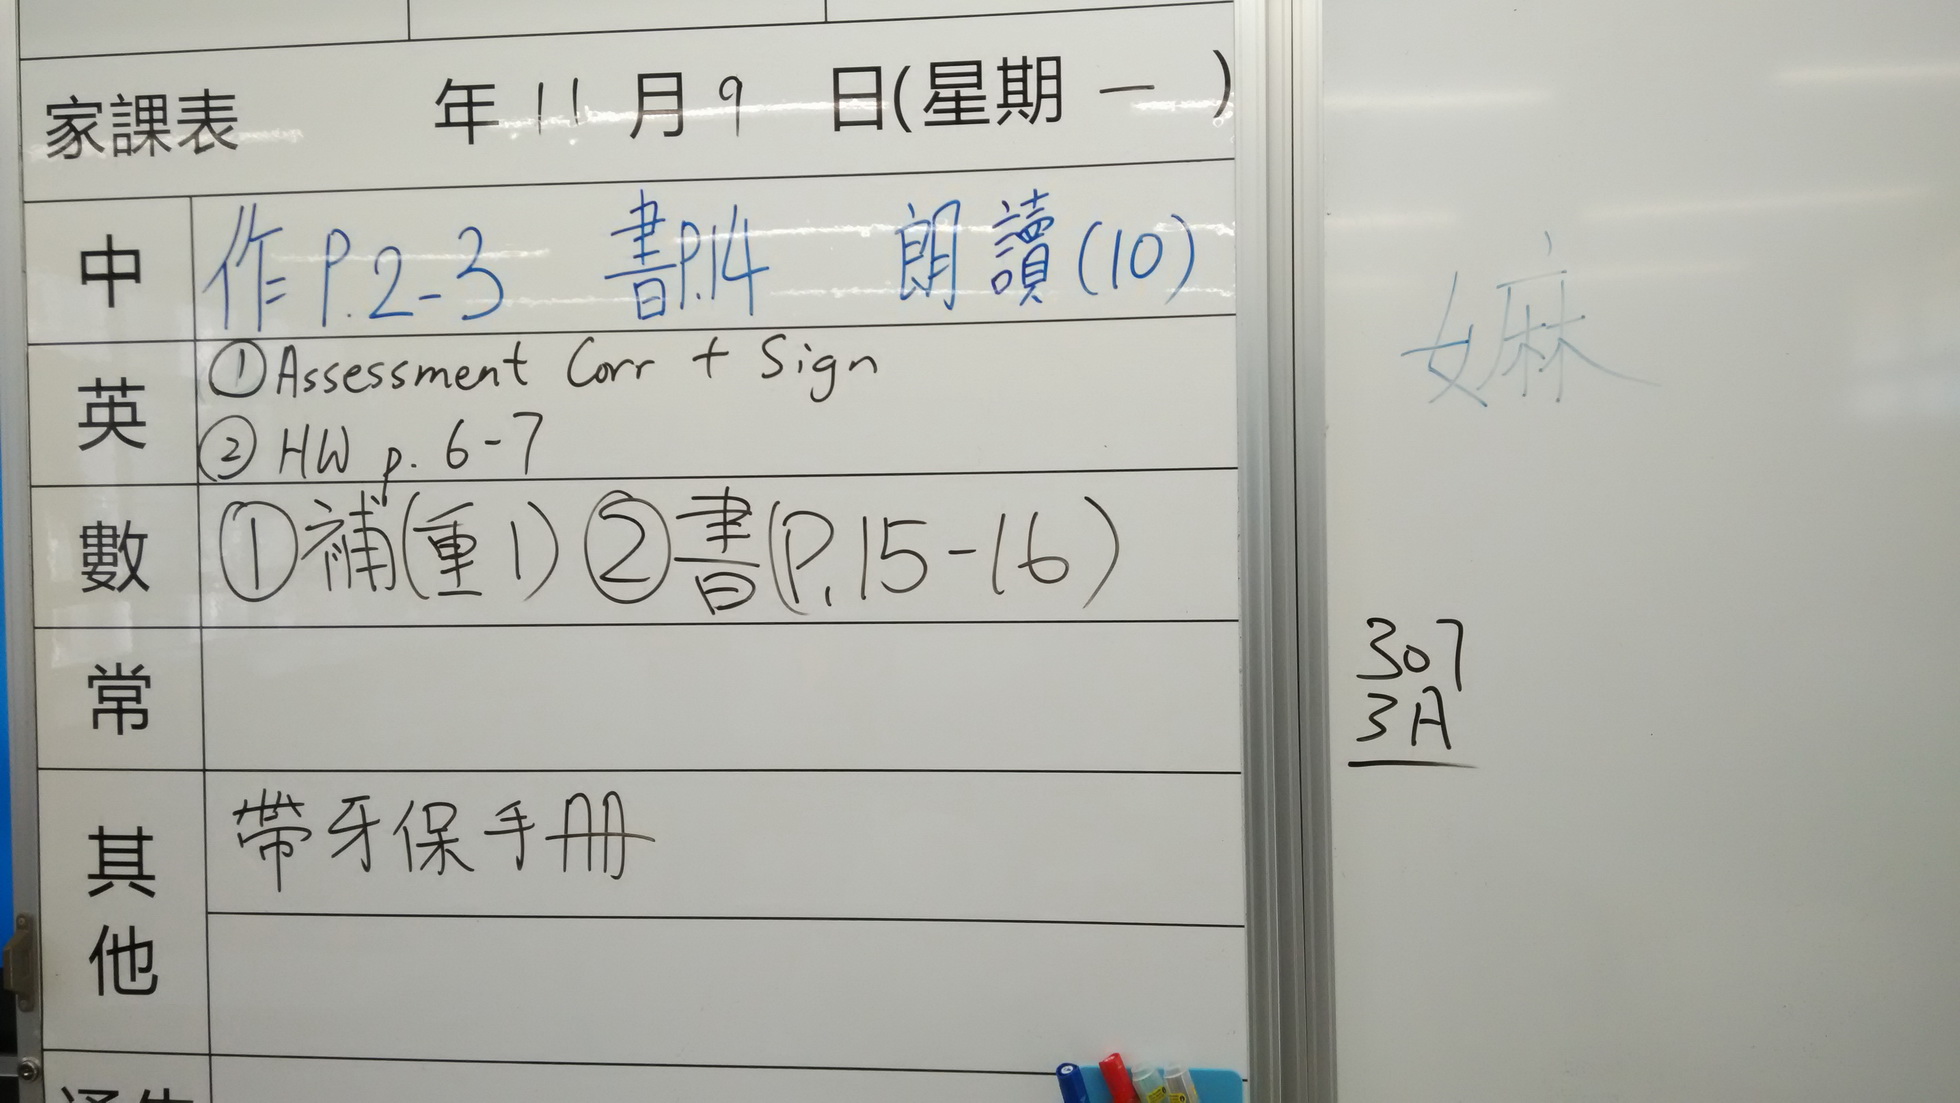 家課表 年 11 月 9 日(星期 一 )
中 作 P.2-3 書P.14 朗讀(10)
英 ①Assessment Corr + Sign
②HW p. 6-7
數 ①補(重1) ②書(P.15-16)
常
其他 帶牙保手冊
嫲
307
3A